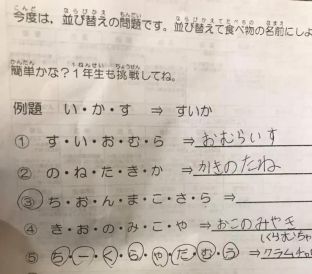 今度は，並び替えの問題です。並び替えて食べ物の名前にしよ
簡単かな？1年生も挑戦してね。
例題 い・か・す ⇒ すいか
① す・い・お・む・ら ⇒ おむらいす
② の・ね・た・き・か ⇒ かきのたね
③ ち・お・ん・ま・こ・さ・ら ⇒
④ き・お・の・み・こ・や ⇒ おこのみやき
(くらむちゃ
⑤ ち・ー・く・ら・ゃ・だ・む・う ⇒ クラムチャ